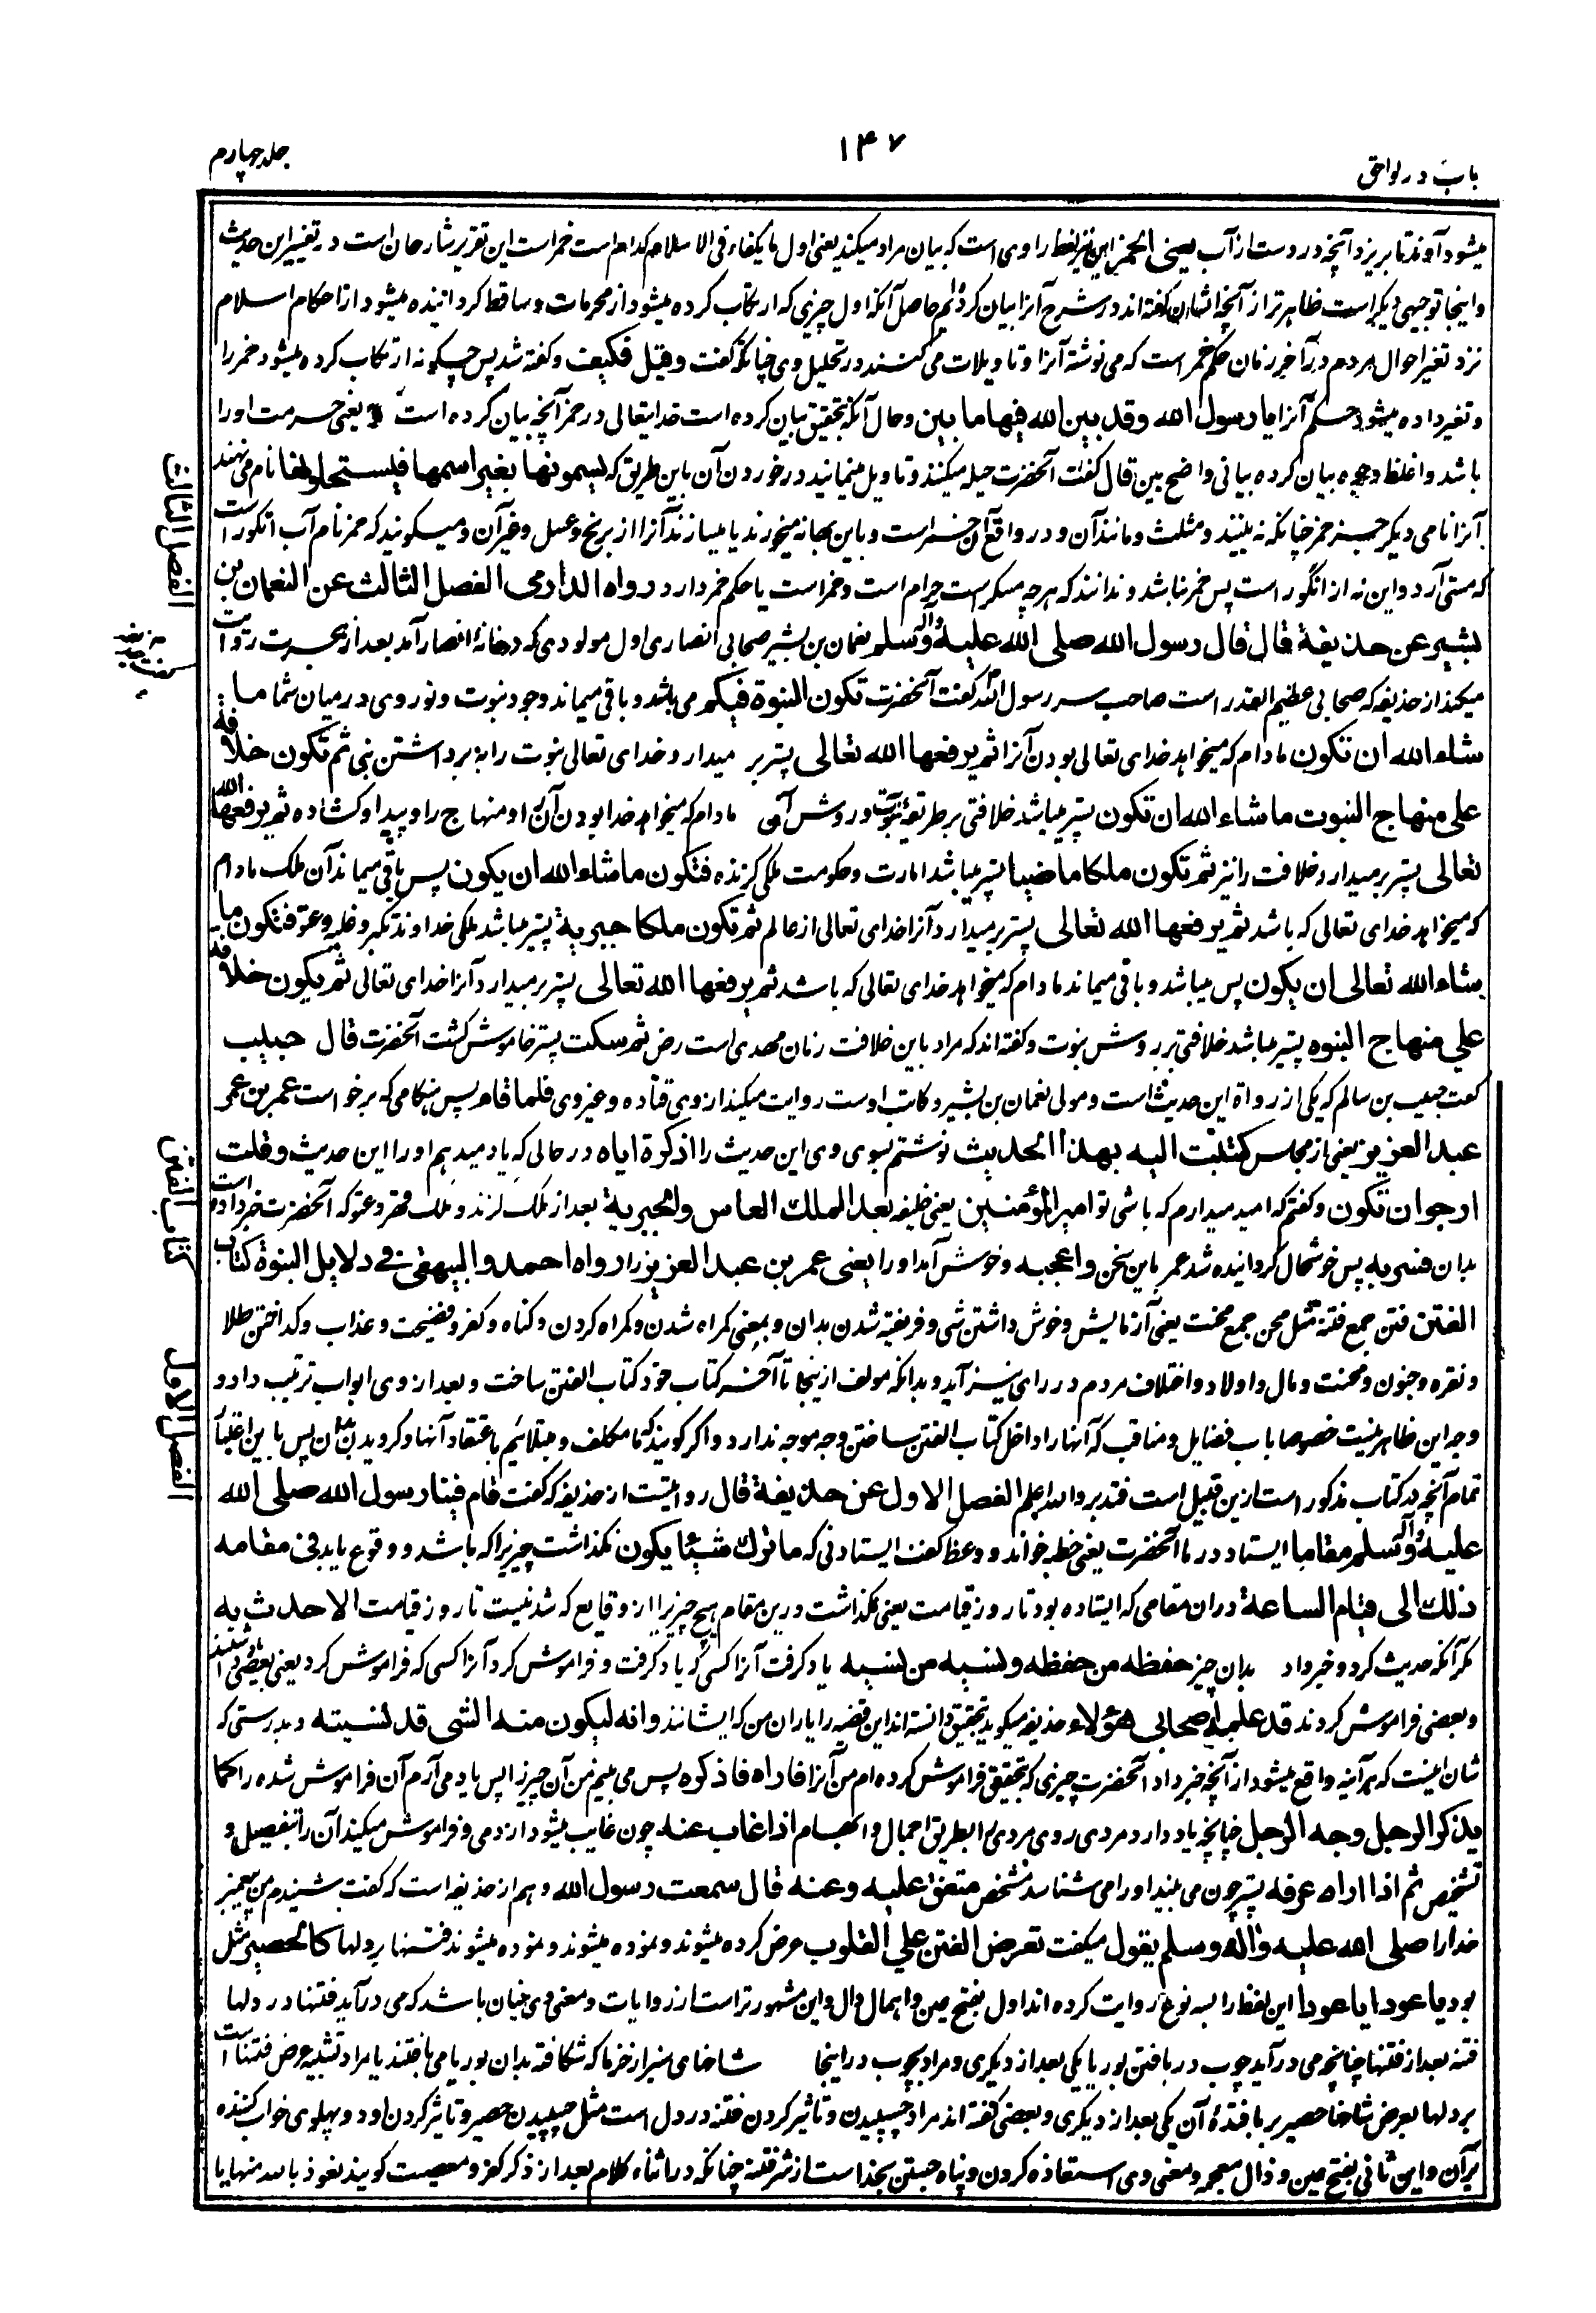 باب در لواحق
۱۴۷
جلد چهارم
میشود آوند تا بریزد آنچه در دست از آب یعنی الخمر این نیز لفظ راوی است که بیان مراد میکند یعنی اول ما یکفاء فی الاسلام کدام است خمر است این تقریر شارحان است در تفسیر این حدیث
و اینجا توجیهی دیگر است ظاهرتر از آنچه ایشان گفته اند در شرح آنرا بیان کرده ایم حاصل آنکه اول چیزی که ارتکاب کرده میشود از محرمات و ساقط گردانیده میشود از احکام اسلام
نزد تغیر احوال مردم در آخر زمان حکم خمر است که می نوشند آنرا و تاویلات می کنند در تحلیل وی چنانکه گفت و قیل فکیف و گفته شد پس چگونه ارتکاب کرده میشود خمر را
و تغیر داده میشود حکم آنرا یا رسول الله وقد بین الله فیها ما بین و حال آنکه بتحقیق بیان کرده است خدایتعالی در خمر آنچه بیان کرده است یعنی حرمت او را
باشد و اغلظ وجوه بیان کرده بیانی واضح بین قال گفت آنحضرت حیله میکنند و تاویل مینمایند در خوردن آن باین طریق که یسمونها بغیر اسمها فیستحلونها نام می نهند
آنرا نامی دیگر جز خمر چنانکه نبیذ و مثلث و مانند آن و در واقع آن خمر است و باین بهانه میخورند یا میسازند آنرا از برنج و عسل و غیر آن و میگویند که خمر نام آب انگور است
که مستی آرد و این نه از انگور است پس خمر نباشد و ندانند که هر چه مسکر است حرام است و خمر است یا حکم خمر دارد رواه الدارمی الفصل الثالث عن النعمان بن
بشیر عن حذیفة قال قال رسول الله صلی الله علیه وآله وسلم نعمان بن بشیر صحابی انصاری اول مولودی که در خانه انصار آمد بعد از هجرت روایت
میکند از حذیفه که صحابی عظیم القدر است صاحب سر رسول الله گفت آنحضرت تکون النبوة فیکم می باشد و باقی میماند وجود نبوت و نور وی در میان شما ما
شاء الله ان تکون مادام که میخواهد خدای تعالی بودن آنرا ثم یرفعها الله تعالی پستر بر میدارد خدای تعالی نبوت را به برداشتن نبی ثم تکون خلافة
علی منهاج النبوت ما شاء الله ان تکون پستر میباشد خلافتی بر طریقه نبوت و روش آن مادام که میخواهد خدا بودن آن او منهاج راه پیدا و کشاده ثم یرفعها الله
تعالی پستر بر میدارد خلافت را نیز ثم تکون ملکا عاضا پستر میباشد امارت و حکومت ملکی گزنده فتکون ما شاء الله ان یکون پس باقی میماند آن ملک مادام
که میخواهد خدای تعالی که باشد ثم یرفعها الله تعالی پستر بر میدارد آنرا خدای تعالی از عالم ثم تکون ملکا جبریة پستر میباشد ملکی خداوند تکبر و غلبه و عتو فتکون ما
شاء الله تعالی ان یکون پس میباشد و باقی میماند مادام که میخواهد خدای تعالی که باشد ثم یرفعها الله تعالی پستر بر میدارد آنرا خدای تعالی ثم یکون خلافة
علی منهاج النبوه پستر میباشد خلافتی بر روش نبوت و گفته اند که مراد باین خلافت زمان مهدی است رض ثم سکت پستر خاموش گشت آنحضرت قال حبیب
گفت حبیب بن سالم که یکی از رواة این حدیث است و مولی نعمان بن بشیر و کاتب اوست روایت میکند از وی قتاده و غیر وی فلما قام پس هنگامی که برخواست عمر بن عمر
عبد العزیز یعنی از مجلس کتبت الیه بهذا الحدیث نوشتم بسوی وی این حدیث را اذکره ایاه در حالی که یاد میدهم او را این حدیث وقلت
ارجو ان تکون و گفتم که امید میدارم که باشی تو امیر المؤمنین یعنی خلیفه بعد الملک العاس والجبریة بعد از ملک گزنده و ملک قهر و عتو که آنحضرت خبر داده است
بدان فسر به پس خوشحال گردانیده شد عمر باین سخن واعجبه و خوش آمد او را یعنی عمر بن عبد العزیز را رواه احمد والبیهقی فی دلایل النبوة کتاب
الفتن فتن جمع فتنه مثل محن جمع محنت یعنی آزمایش و خوش داشتن شی و فریفته شدن بدان و بمعنی گمراه شدن و گمراه کردن و گناه و کفر و فضیحت و عذاب و گداختن طلا
و نقره و جنون و محنت و مال و اولاد و اختلاف مردم در رای نیز آید و بدانکه مولف ازینجا تا آخر کتاب خود کتاب الفتن ساخت و بعد از وی ابواب ترتیب داد و
وجه این ظاهر نیست خصوصا باب فضایل و مناقب که آنها را داخل کتاب الفتن ساختن وجه موجه ندارد و اگر گویند که ما مکلف و مبتلائیم باعتقاد آنها و گرویدن بدان پس باین اعتبار
تمام آنچه در کتاب مذکور است ازین قبیل است فتدبر والله اعلم الفصل الاول عن حذیفة قال روایتست از حذیفه که گفت قام فینا رسول الله صلی الله
علیه وآله وسلم مقاما ایستاد در ما آنحضرت یعنی خطبه خواند و وعظ گفت ایستادنی که ما ترک شیئا یکون نگذاشت چیزیرا که باشد و وقوع یابد فی مقامه
ذلک الی قیام الساعة دران مقامی که ایستاده بود تا روز قیامت یعنی نگذاشت درین مقام هیچ چیزیرا از وقایع که شدنیست تا روز قیامت الا حدث به
مگر آنکه حدیث کرد و خبر داد بدان چیز حفظه من حفظه ونسیه من نسیه یاد گرفت آنرا کسی که یاد گرفت و فراموش کرد آنرا کسی که فراموش کرد یعنی بعضی یاد داشتند
و بعضی فراموش کردند قد علمه اصحابی هؤلاء حذیفه میگوید بتحقیق دانسته اند این قضیه را یاران من که ایشانند وانه لیکون منه الشی قد نسیته و بدرستی که
شان اینست که هر آینه واقع میشود از آنچه خبر داد آنحضرت چیزی که بتحقیق فراموش کرده ام من آنرا فاراه فاذکره پس می بینم من آن چیز را پس یاد می آرم آن فراموش شده را کما
یذکر الرجل وجه الرجل چنانچه یاد دارد مردی روی مردی را بطریق اجمال و ابهام اذا غاب عنه چون غایب میشود از وی و فراموش میکند آن را بتفصیل و
تشخیص ثم اذا راه عرفه پستر چون می بیند او را می شناسد بتشخص متفق علیه وعنه قال سمعت رسول الله و هم از حذیفه است که گفت شنیدم من پیغمبر
خدا را صلی الله علیه وآله وسلم یقول میگفت تعرض الفتن علی القلوب عرض کرده میشوند و نموده میشوند و نموده میشوند فتنها بر دلها کالحصیر مثل
بوریا عودا عودا این لفظ را بسه نوع روایت کرده اند اول بفتح عین و اهمال دال و این مشهورتر است از روایات و معنی وی چنان باشد که می در آید فتنها در دلها
فتنه بعد از فتنها چنانچه می در آید چوب در بافتن بوریا یکی بعد از دیگری و مراد بچوب در اینجا شاخهای سبز از خرما که شکافته بدان بوریا می بافتند یا مراد تشبیه عرض فتنها است
بر دلها بعرض شاخها حصیر بر بافنده آن یکی بعد از دیگری و بعضی گفته اند مراد چسپیدن و تاثیر کردن فتنه در دل است مثل چسپیدن حصیر و تاثیر کردن او در پهلوی خواب کننده
بر آن و این ثانی بفتح عین و ذال معجمه و معنی وی استعاذه کردن و پناه جستن بخذاست از شر فتنه چنانکه در اثناء کلام بعد از ذکر کفر و معصیت گویند نعوذ بالله منها یا
الفصل الثالث
کتاب الفتن
الفصل الاول